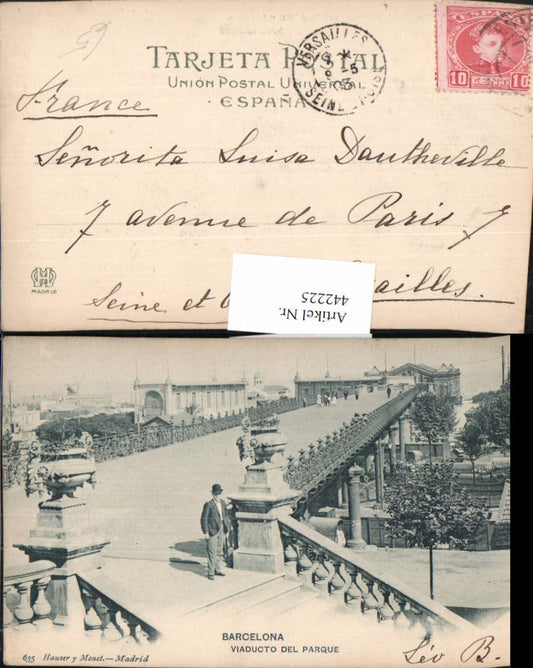 TARJETA POSTAL
UNIÓN POSTAL UNIVERSAL
ESPAÑA
VERSAILLES
SEINE
ESPAÑA
10 10
France
Señorita Luisa Dautheville
7 avenue de Paris 7
Seine et
MADRID
Artikel Nr.
442225
BARCELONA
VIADUCTO DEL PARQUE
635 Hauser y Menet.—Madrid
Léo B.